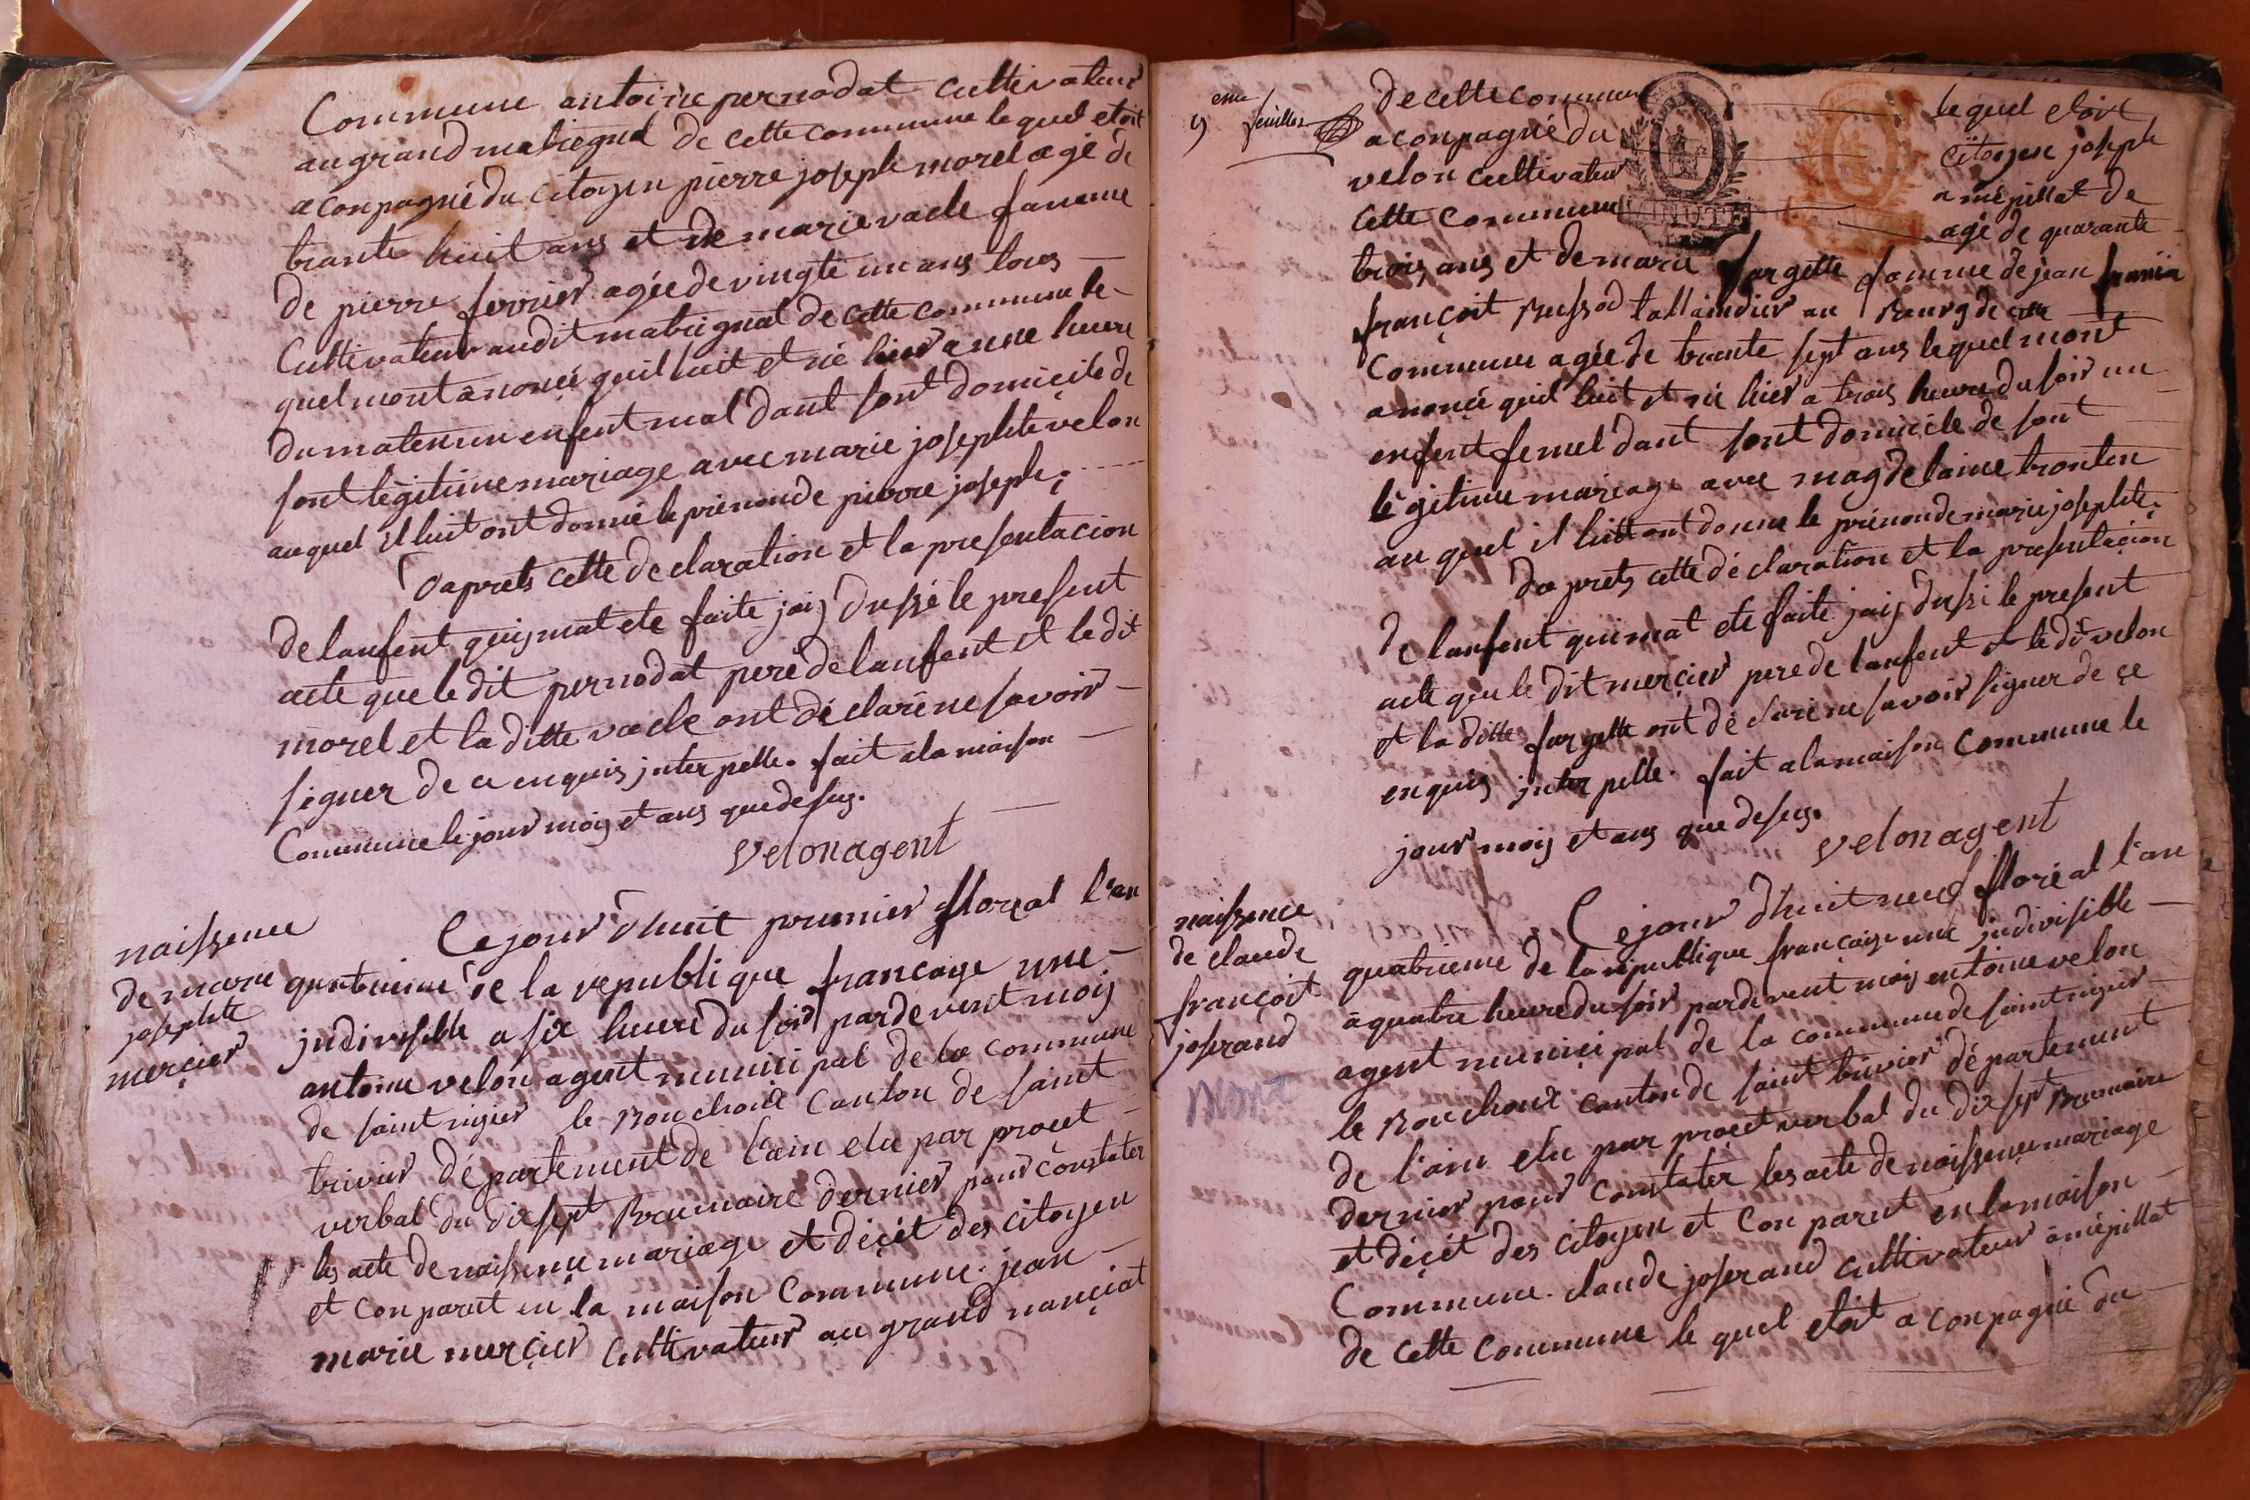 Commune antoine pernodat cultivateur
au grand matregnal de cette commune le quel etoit
aconpagné du citoyen pierre joseph morel agé de
trante huit ans et de marie vacle famme
de pierre ferrier agée de vingte un ans tous
Cultivateur audit matrignal de cette commune le
quel mont anoncé quil luit et né hier a une heure
du maten un enfent mal dant sont domicile de
sont légitime mariage avec marie josephte velon
auquel il luit ont donné le prénon de pierre joseph.
Daprets cette declaration et la presentacion
de lanfent quiy mat ete faite jaiy dussé le present
acte que le dit pernodat pere de lanfent et le dit
morel et la ditte vacle ont déclaré ne savoir
signer de ce enquis jnterpelle. fait a la maison
Commune le jour mois et ans que desus.
velon agent
naissence
de marie
josephte
mercier
Ce jour dhuit premier floreal l'an
quatrieme de la republique francaise une
jndivisible a six heure du soir pardevent moij
antoine velon agent municipal de la commune
de saint nizier le Bouchoux canton de saint
trivier département de l'ain elu par procet
verbal du dixsept Brumaire dernier pour constater
les acte de naissence mariage et décét des citoyen
et conparut en la maison Commune. jean
marie mercier cultivateur au grand nançiat
9 eme feuillet
de cette commune le quel etoit
aconpagné du citoyen joseph
velon cultivateur a mépillat de
cette commune agé de quarante
MINUTE
trois ans et de marie fargette famme de jean
françoit Bussod tallandier au Bourg de cette
Commune agée de trante sept ans lequel mont
anoncé quil luit et né hier a trois heure du soir un
enfent femel dant sont domicile de sont
légitime mariage avec magdelaine tronlon
au quel il luit ont donne le prénon de marie josephte.
da prets cette déclaration et la presentacion
de lanfent qui mat ete faite jaij dussé le present
acte que le dit mercier pere de lanfent et le dit velon
et la ditte fargette ont déclaré ne savoir signer de ce
enquis jnterpelle. fait a la maison commune le
jour mois et ans que desus.
velon agent
naissence
de claude
françoit
joserand
Mort
Ce jour dhuit neuf floréal l'an
quatrieme de la république française une jndivisible
a quatre heure du soir pardevent moij antoine velon
agent municipal de la commune de saint nizier
le Bouchoux canton de saint trivier département
de l'ain elu par procet verbal du dixsept Brumaire
dernier pour constater les acte de naissence mariage
et décét des citoyen et conparut en la maison
Commune. claude joserand cultivateur a mépillat
de cette commune le quel etoit aconpagné du